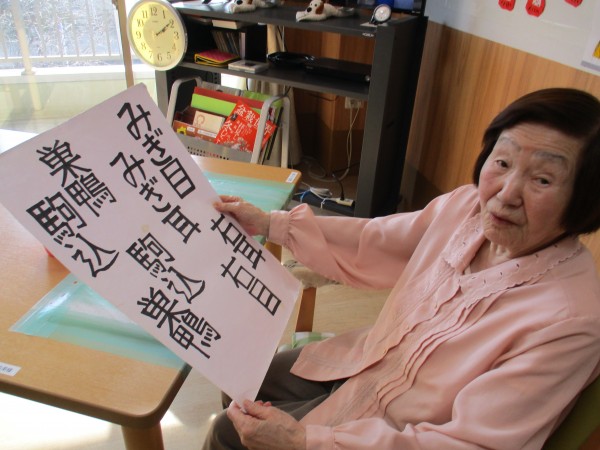 みぎ目 右耳
みぎ耳 右目
巣鴨 駒込
駒込 巣鴨